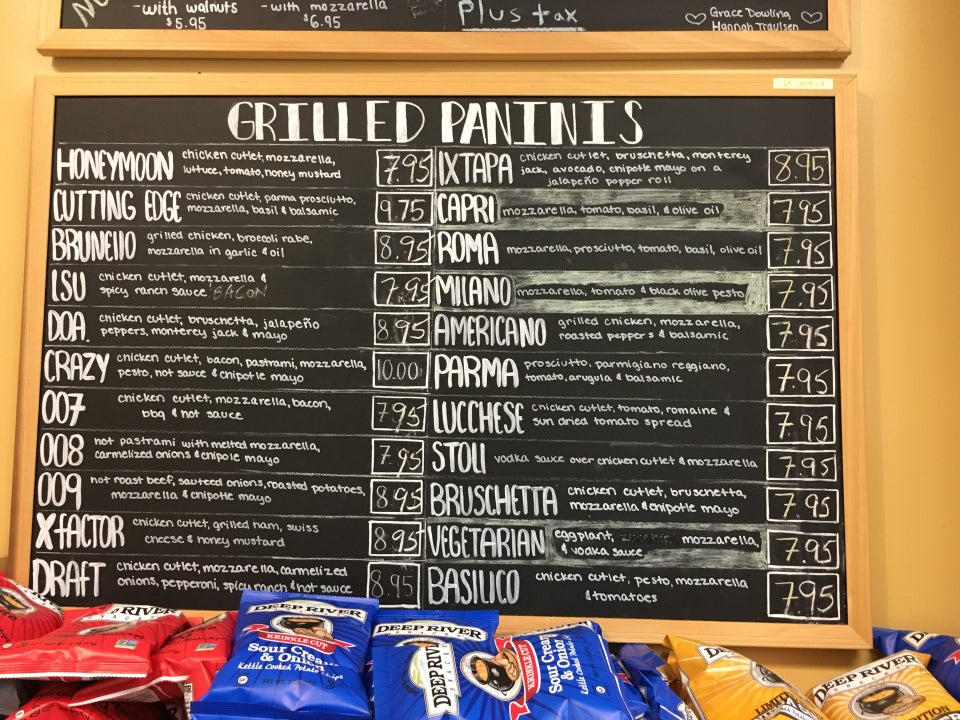 -with walnuts
$5.95
-with mozzarella
$6.95
Plus tax
Grace Dowling
Hannah Traulsen
GRILLED PANINIS
HONEYMOON chicken cutlet, mozzarella,
luttuce, tomato, honey mustard 7.95
CUTTING EDGE chicken cutlet, parma prosciutto,
mozzarella, basil & balsamic 9.75
BRUNELLO grilled chicken, broccoli rabe,
mozzarella in garlic & oil 8.95
LSU chicken cutlet, mozzarella &
spicy ranch sauce BACON 7.95
D.O.A. chicken cutlet, bruschetta, jalapeño
peppers, monterey jack & mayo 8.95
CRAZY chicken cutlet, bacon, pastrami, mozzarella,
pesto, hot sauce & chipotle mayo 10.00
007 chicken cutlet, mozzarella, bacon,
bbq & hot sauce 7.95
008 hot pastrami with melted mozzarella,
carmelized onions & chipotle mayo 7.95
009 hot roast beef, sauteed onions, roasted potatoes,
mozzarella & chipotle mayo 8.95
X-FACTOR chicken cutlet, grilled ham, swiss
cheese & honey mustard 8.95
DRAFT chicken cutlet, mozzarella, carmelized
onions, pepperoni, spicy ranch & hot sauce 8.95
IXTAPA chicken cutlet, bruschetta, monterey
jack, avocado, chipotle mayo on a
jalapeño popper roll 8.95
CAPRI mozzarella, tomato, basil, & olive oil 7.95
ROMA mozzarella, prosciutto, tomato, basil, olive oil 7.95
MILANO mozzarella, tomato & black olive pesto 7.95
AMERICANO grilled chicken, mozzarella,
roasted peppers & balsamic 7.95
PARMA prosciutto, parmigiano reggiano,
tomato, arugula & balsamic 7.95
LUCCHESE chicken cutlet, tomato, romaine &
sun dried tomato spread 7.95
STOLI vodka sauce over chicken cutlet & mozzarella 7.95
BRUSCHETTA chicken cutlet, bruschetta,
mozzarella & chipotle mayo 7.95
VEGETARIAN eggplant, mozzarella,
& vodka sauce 7.95
BASILICO chicken cutlet, pesto, mozzarella
& tomatoes 7.95
DEEP RIVER
DEEP RIVER
KRINKLE CUT
Sour Cream
& Onion
Kettle Cooked Potato Chips
DEEP RIVER
DEEP RIVER
KRINKLE CUT
Sour Cream
& Onion
DEEP RIVER